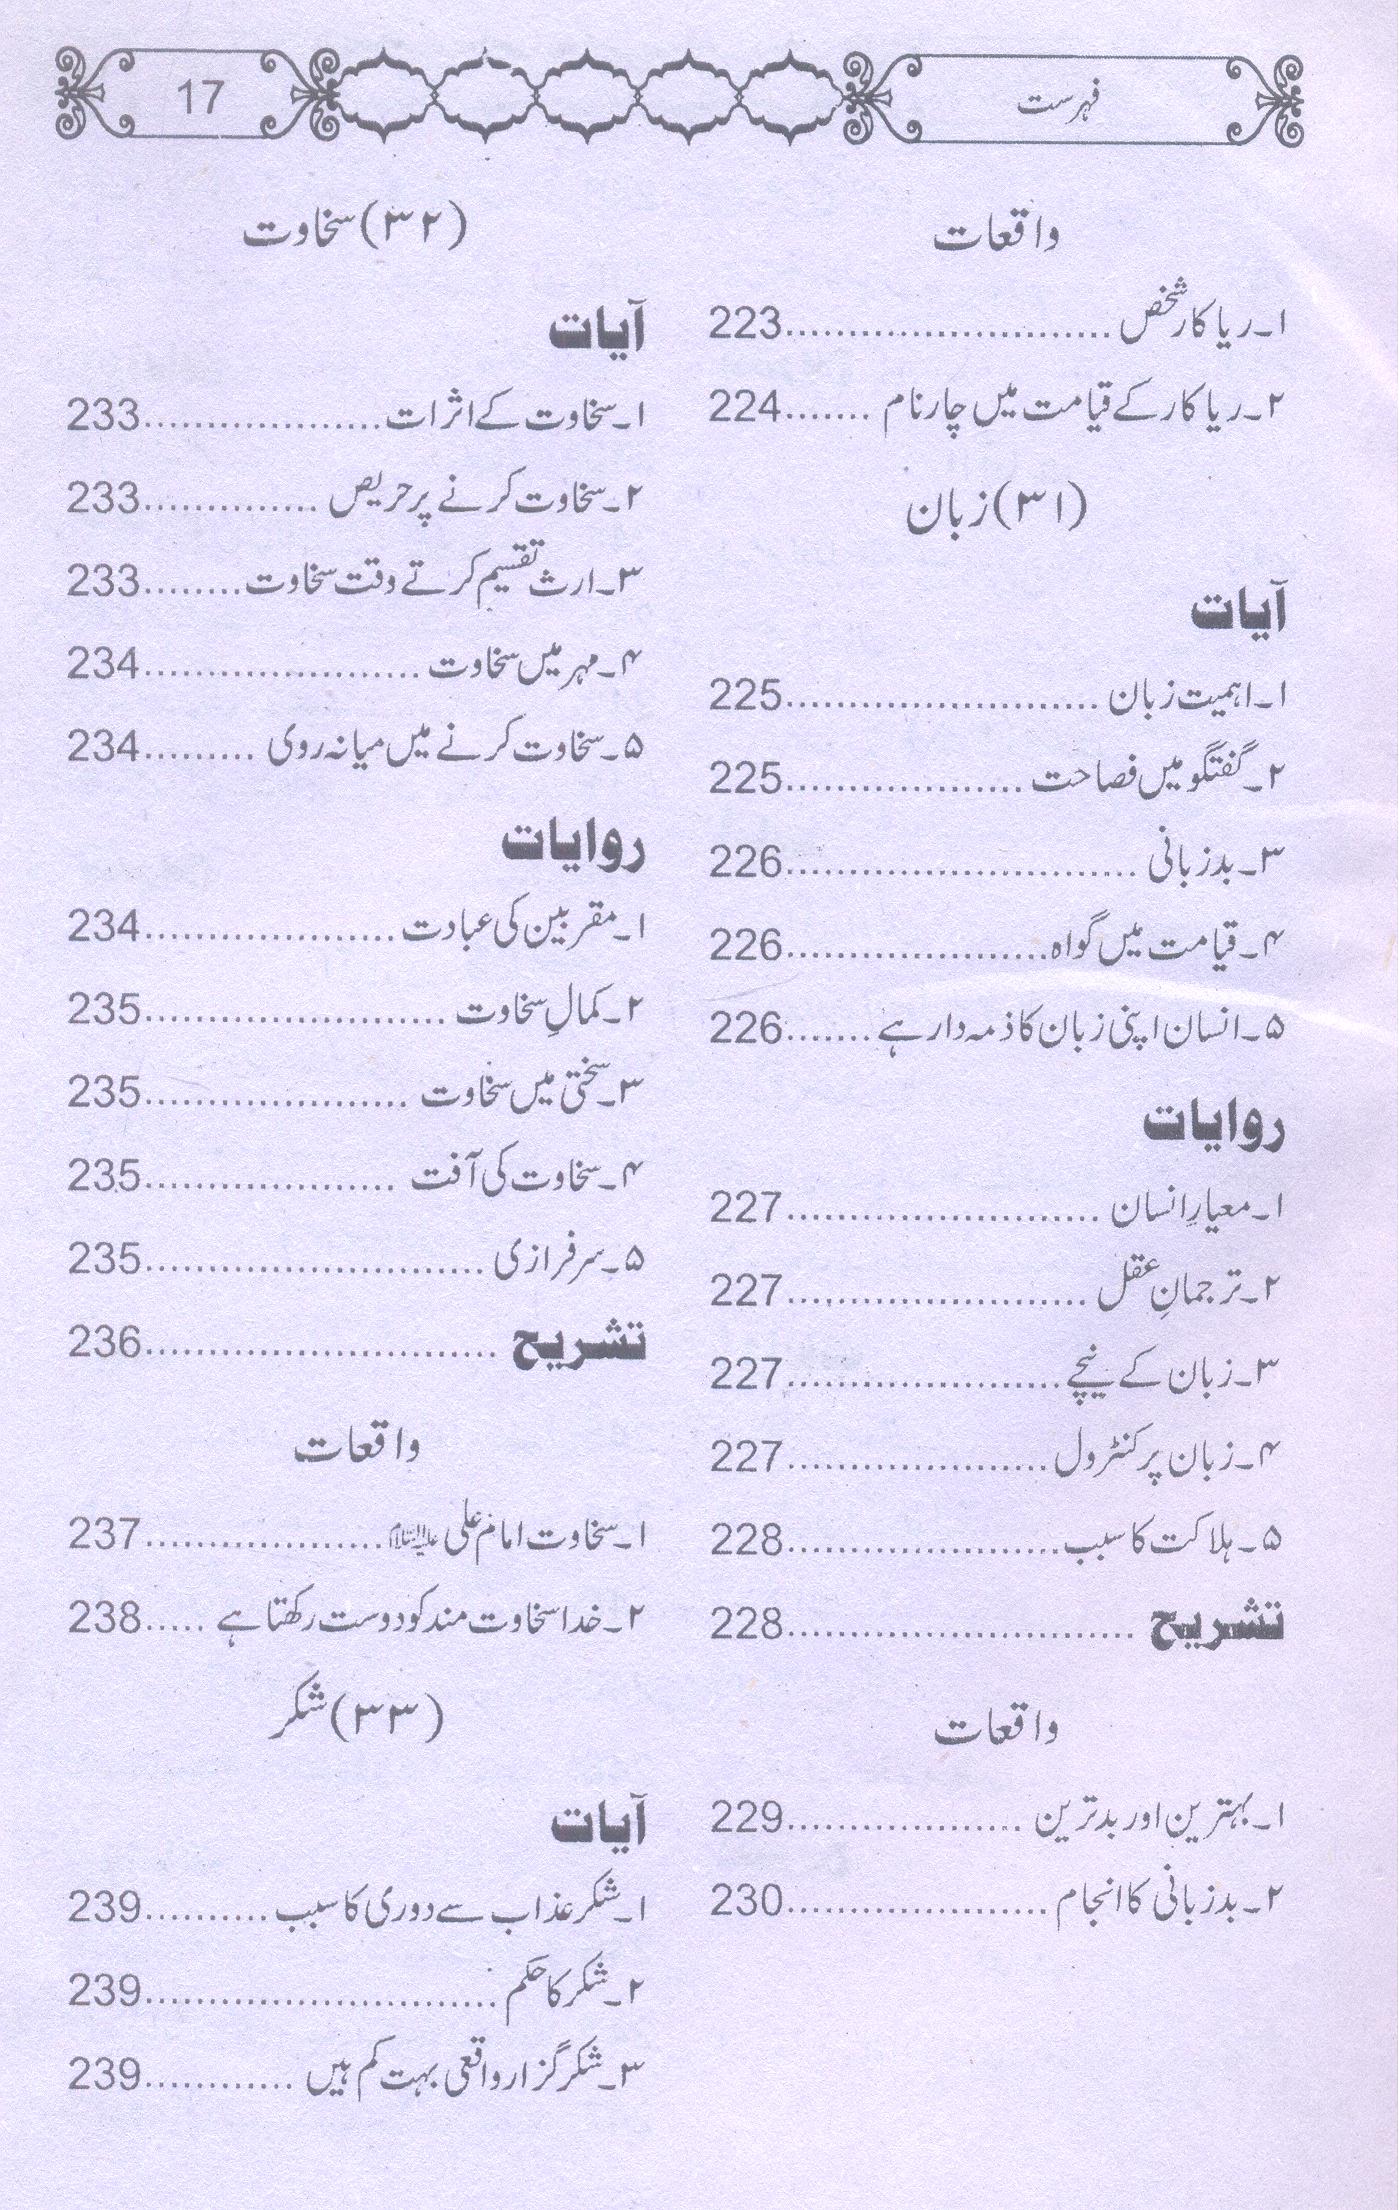 فہرست
17
واقعات
۱۔ریاکارشخص..........................223
۲۔ریاکارکے قیامت میں چارنام.......224
(۳۱)زبان
آیات
۱۔اہمیت زبان.........................225
۲۔گفتگو میں فصاحت...................225
۳۔بدزبانی............................226
۴۔قیامت میں گواہ.....................226
۵۔انسان اپنی زبان کا ذمہ دار ہے.......226
روایات
۱۔معیارِانسان.........................227
۲۔ترجمانِ عقل........................227
۳۔زبان کے نیچے......................227
۴۔زبان پر کنٹرول.....................227
۵۔ہلاکت کا سبب......................228
تشریح............................228
واقعات
۱۔بہترین اور بدترین...................229
۲۔بدزبانی کا انجام.....................230
(۳۲)سخاوت
آیات
۱۔سخاوت کے اثرات...................233
۲۔سخاوت کرنے پر حریص..............233
۳۔ارث تقسیم کرتے وقت سخاوت........233
۴۔مہر میں سخاوت......................234
۵۔سخاوت کرنے میں میانہ روی.........234
روایات
۱۔مقربین کی عبادت....................234
۲۔کمالِ سخاوت........................235
۳۔سختی میں سخاوت.....................235
۴۔سخاوت کی آفت....................235
۵۔سرفرازی...........................235
تشریح............................236
واقعات
۱۔سخاوت امام علی علیہ السلام...................237
۲۔خدا سخاوت مند کو دوست رکھتا ہے.....238
(۳۳)شکر
آیات
۱۔شکر عذاب سے دوری کا سبب..........239
۲۔شکر کا حکم............................239
۳۔شکر گزار واقعی بہت کم ہیں............239